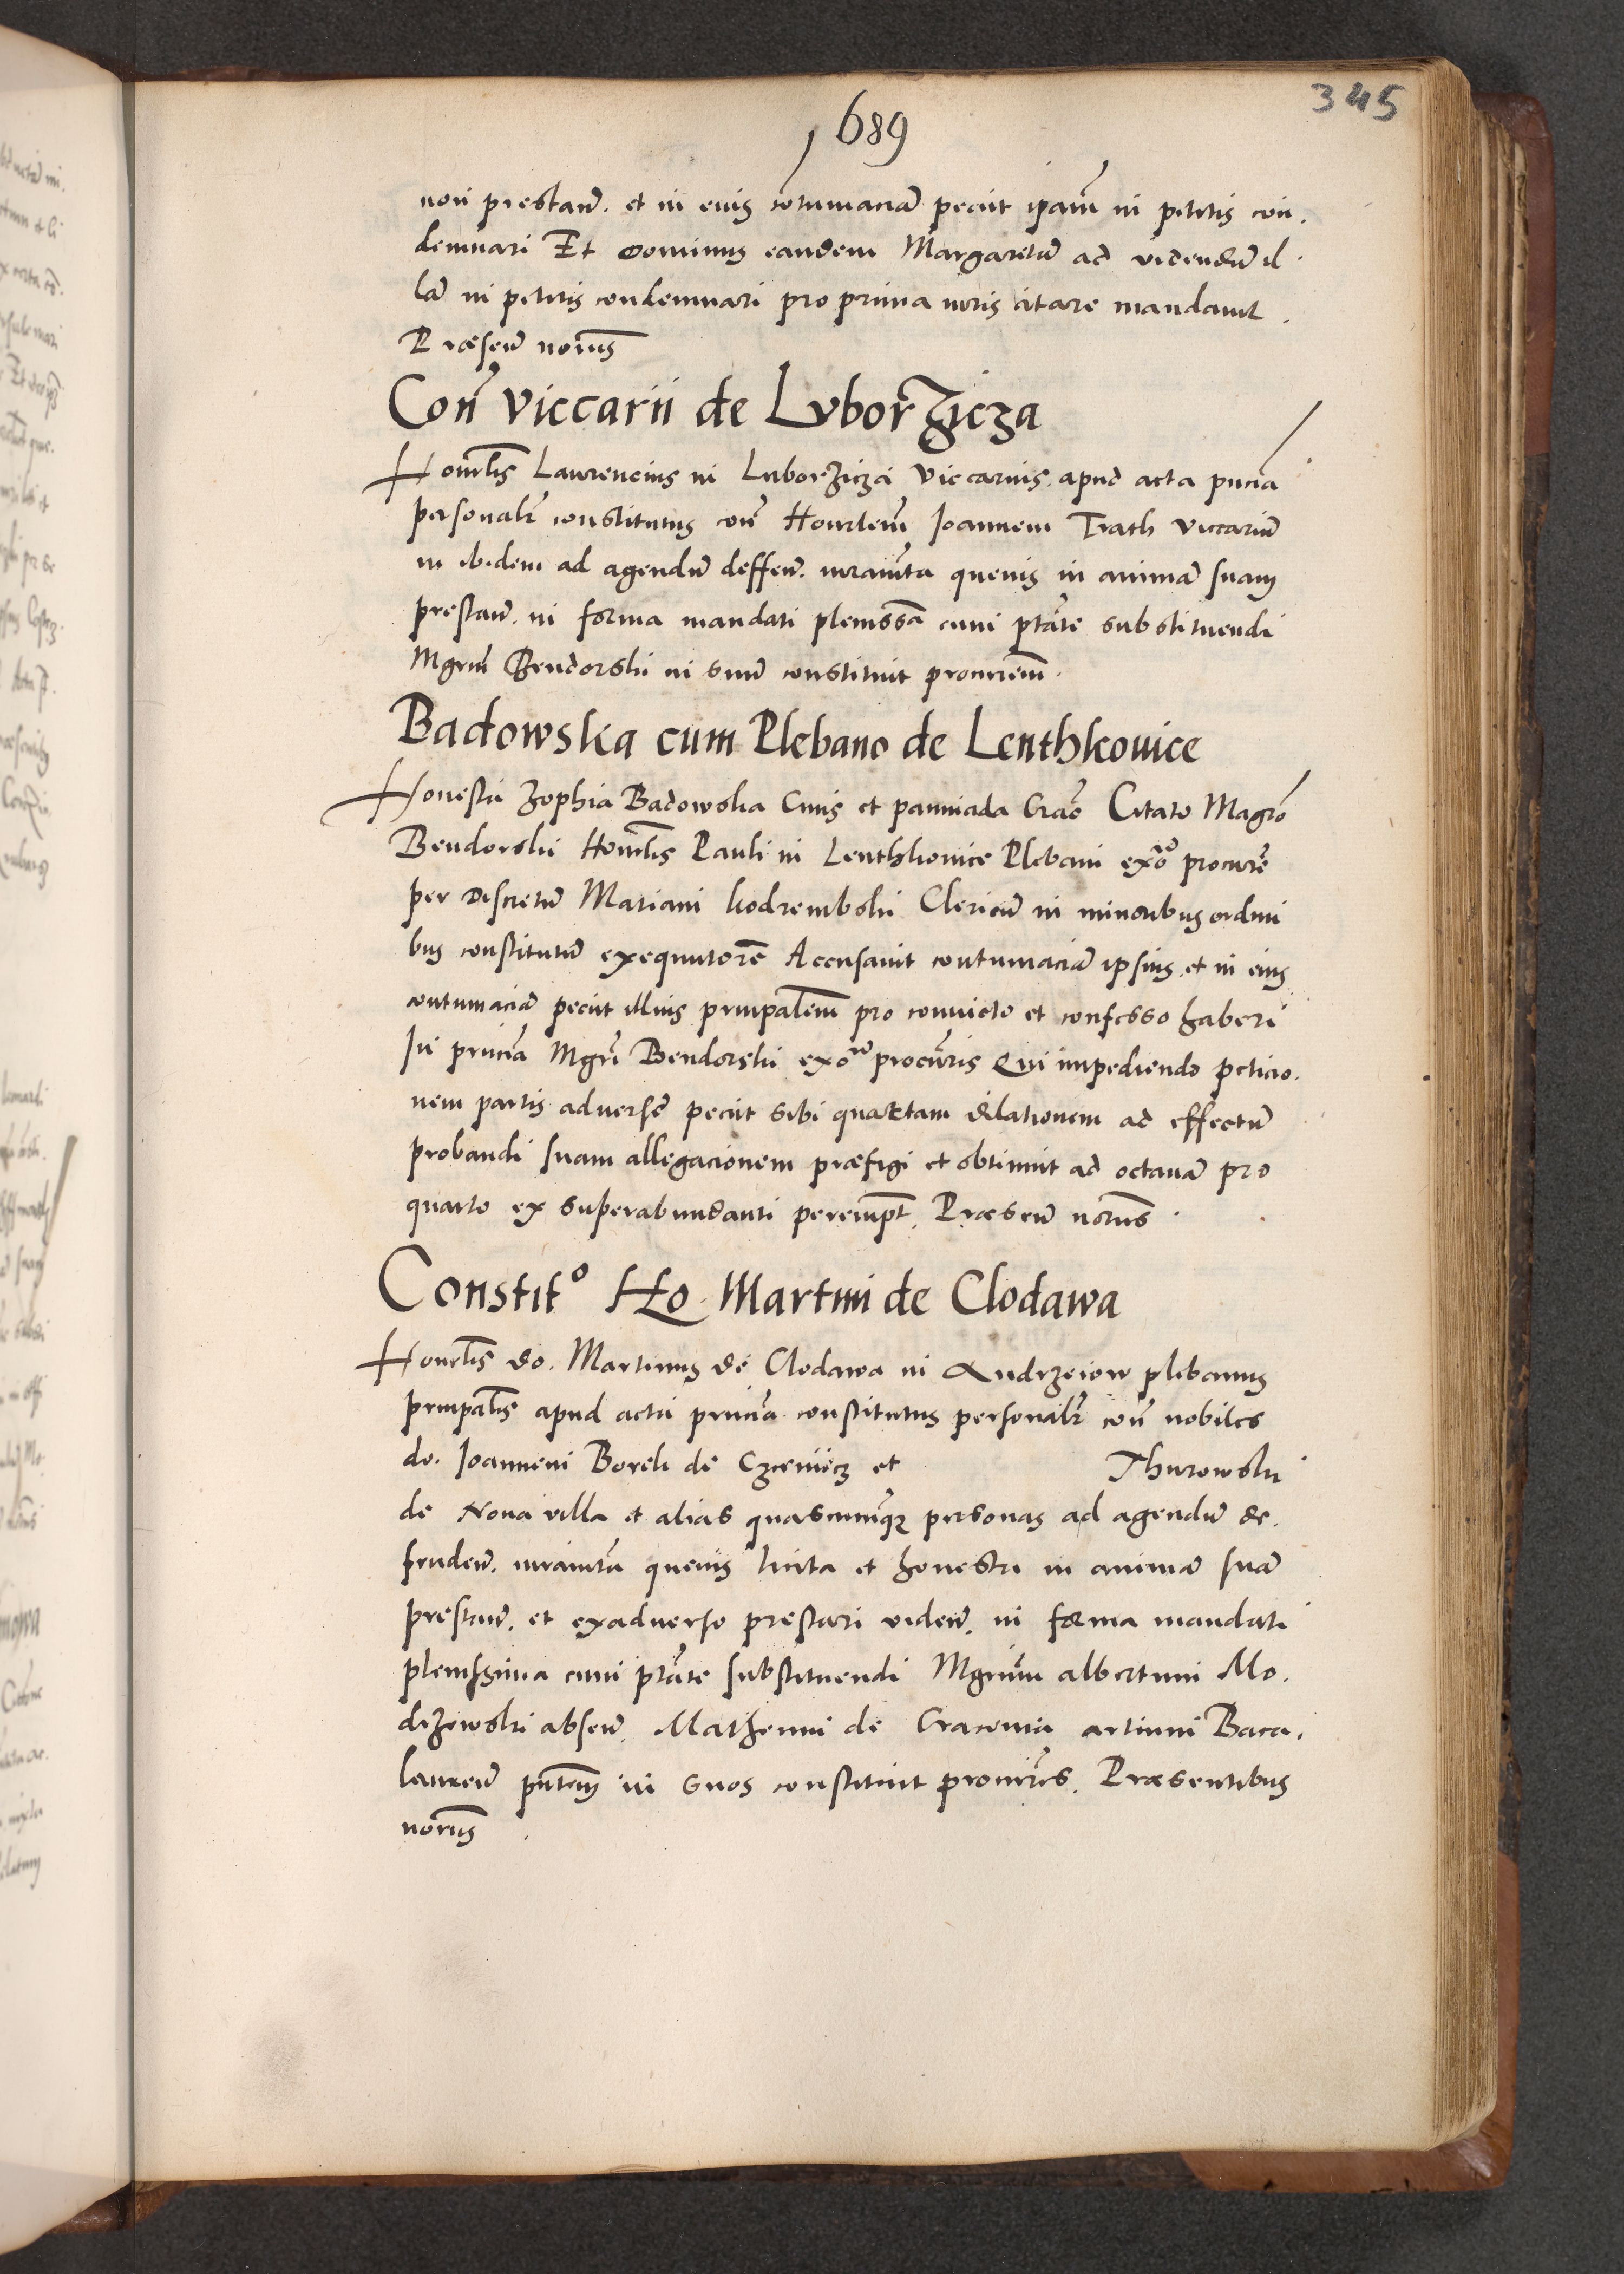 345
689
non prestan̄. et in eius cōtumaciā peciit ipam̄ in petitis con.
demnari Et Dominus eandem Margaretā ad videndū il
lā in petitis condemnari pro prima iuris citare mandauit.
Præsen̄ notius̄
Con̄ Viccarii de Lvborzicza
Honrlis̄ Laurencius in Luborzicza Viccarius apud acta pn̄cia
personalr̄ constitutus con̄ Honrlem̄ Ioannem Trath Viccariū
in ibidem ad agendū deffen̄. iuramn̄ta quevis in animā suam
prestan̄. in forma mandati plenissā cum ptāte substituendi
Mgrum̄ Bendorski in suū constituit procurem̄.
Badowska cum Plebano de Lenthkouice
Honesta Zophia Badowska Ciuis et panniada Crac̄ Citato Magrō
Bendorski Honrlis̄ Pauli in Lenthkouice Plebani exō procure̅
per Discretū Matiam Kodrembski Clericū in minoribus ordini
bus constitutū exequutorē Accusauit contumaciā ipsius et in eius
contumaciā peciit illius prinpalem̄ pro conuicto et confesso haberi
In pn̄cia Mgrī Bendorski exō procūris Qui impediendo peticio.
nem partis adverse peciit sibi quartam dilationem ad effectū
probandi suam allegacionem præfigi et obtinuit ad octauā pro
quarto ex superabundanti perempt̄. Præsen̄ notius̄.
Constit° Ho. Martini de Clodawa
Honrlis̄ do. Martinus de Clodawa in Andrzeiow plebanus
prinpalis̄ apud acta pn̄cia constitutus personalr̄ con̄ nobiles
do. Ioannem Borek de et Thurowski
de Nova villa et alias quascunqꝫ personas ad agendū de.
fenden̄. iuramn̄ta quevis licita et honesta in animā suā
prestan̄. et exadverso prestari viden̄. in forma mandati
plenissima cum ptāte substituendi Mgrum̄ albertum Mo.
drzewski absen̄. Matheum de Cracovia artium Baca.
laureū pn̄tem̄ in suos constituit procures̄. Præsentibus
notius̄.